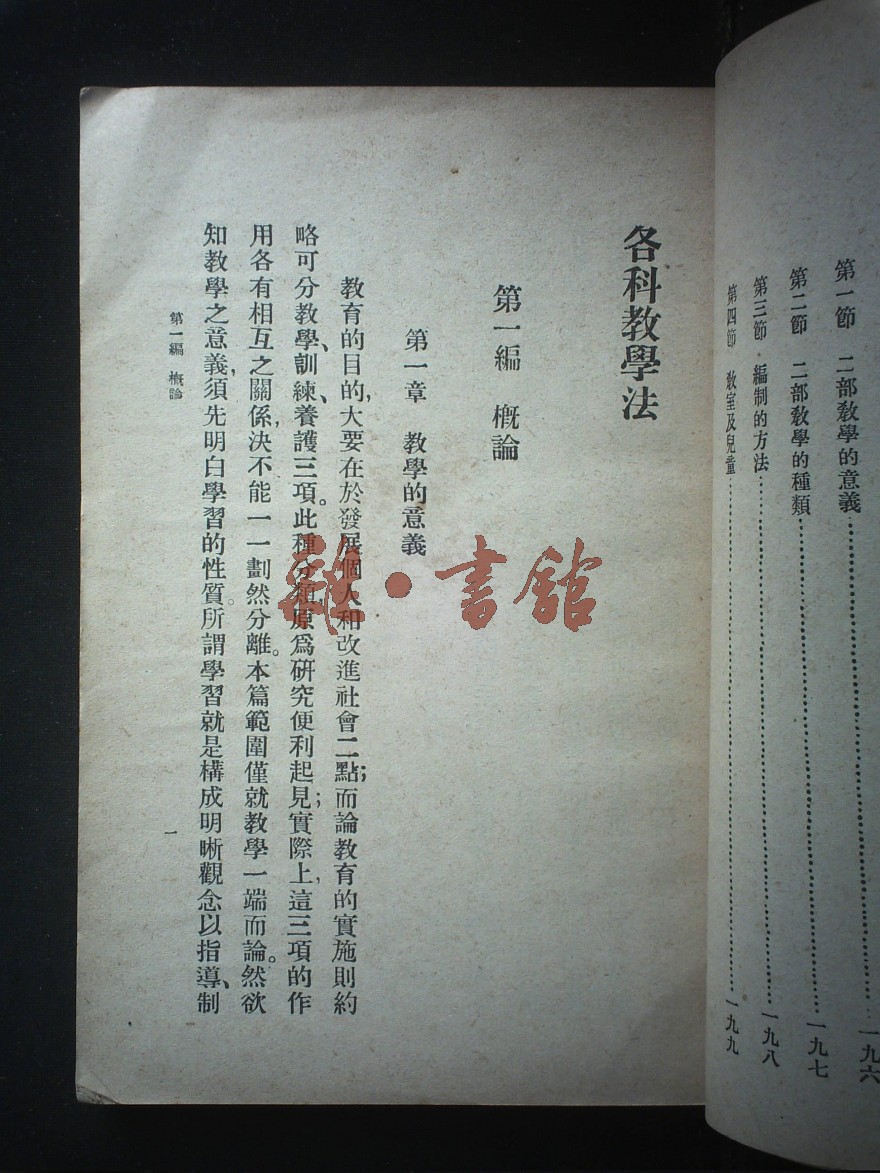 第一節　二部教學的意義……一九六
第二節　二部教學的種類……一九七
第三節　編制的方法……一九八
第四節　教室及兒童……一九九
各科教學法
第一編　概論
第一章　教學的意義
教育的目的，大要在於發展個人和改進社會二點；而論教育的實施則約
略可分教學、訓練、養護三項。此種分類，原爲研究便利起見；實際上，這三項的作
用各有相互之關係，決不能一一劃然分離。本篇範圍僅就教學一端而論。然欲
知教學之意義，須先明白學習的性質。所謂學習就是構成明晰觀念以指導、制
第一編　概論
一
雜·書館